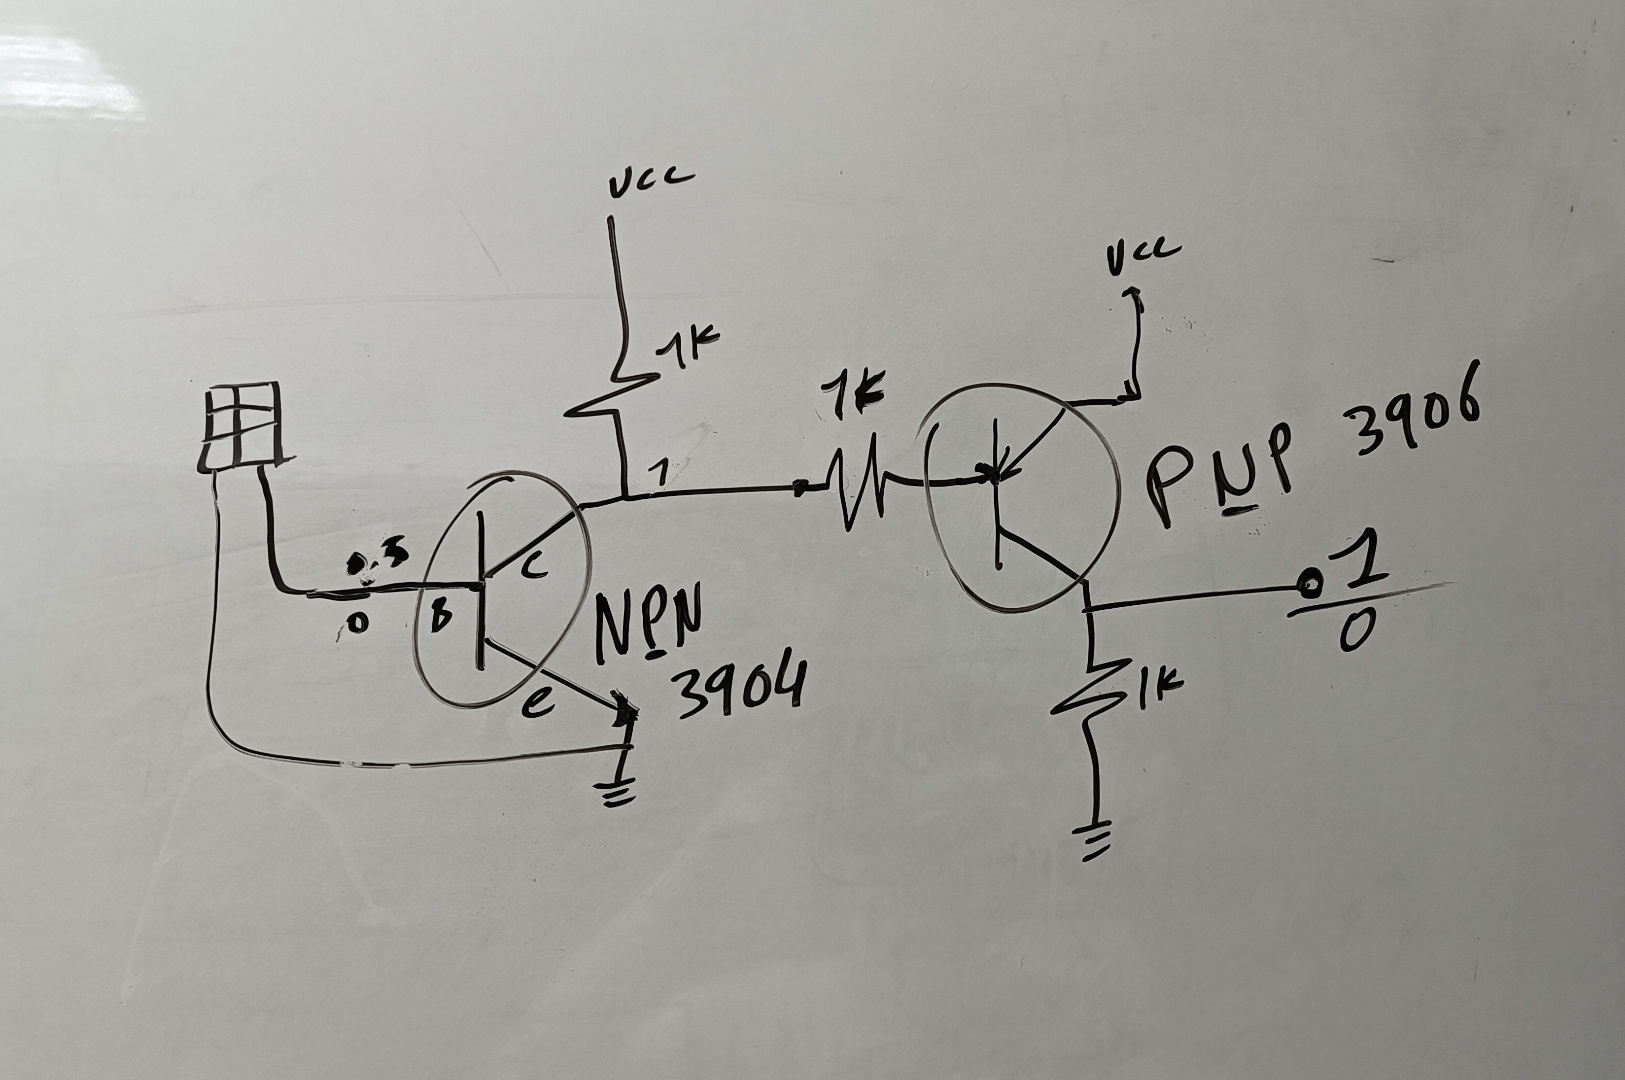 VCC
VCC
1K
1K
1
PNP 3906
0.5
0
B
C
e
NPN
3904
1
0
1K